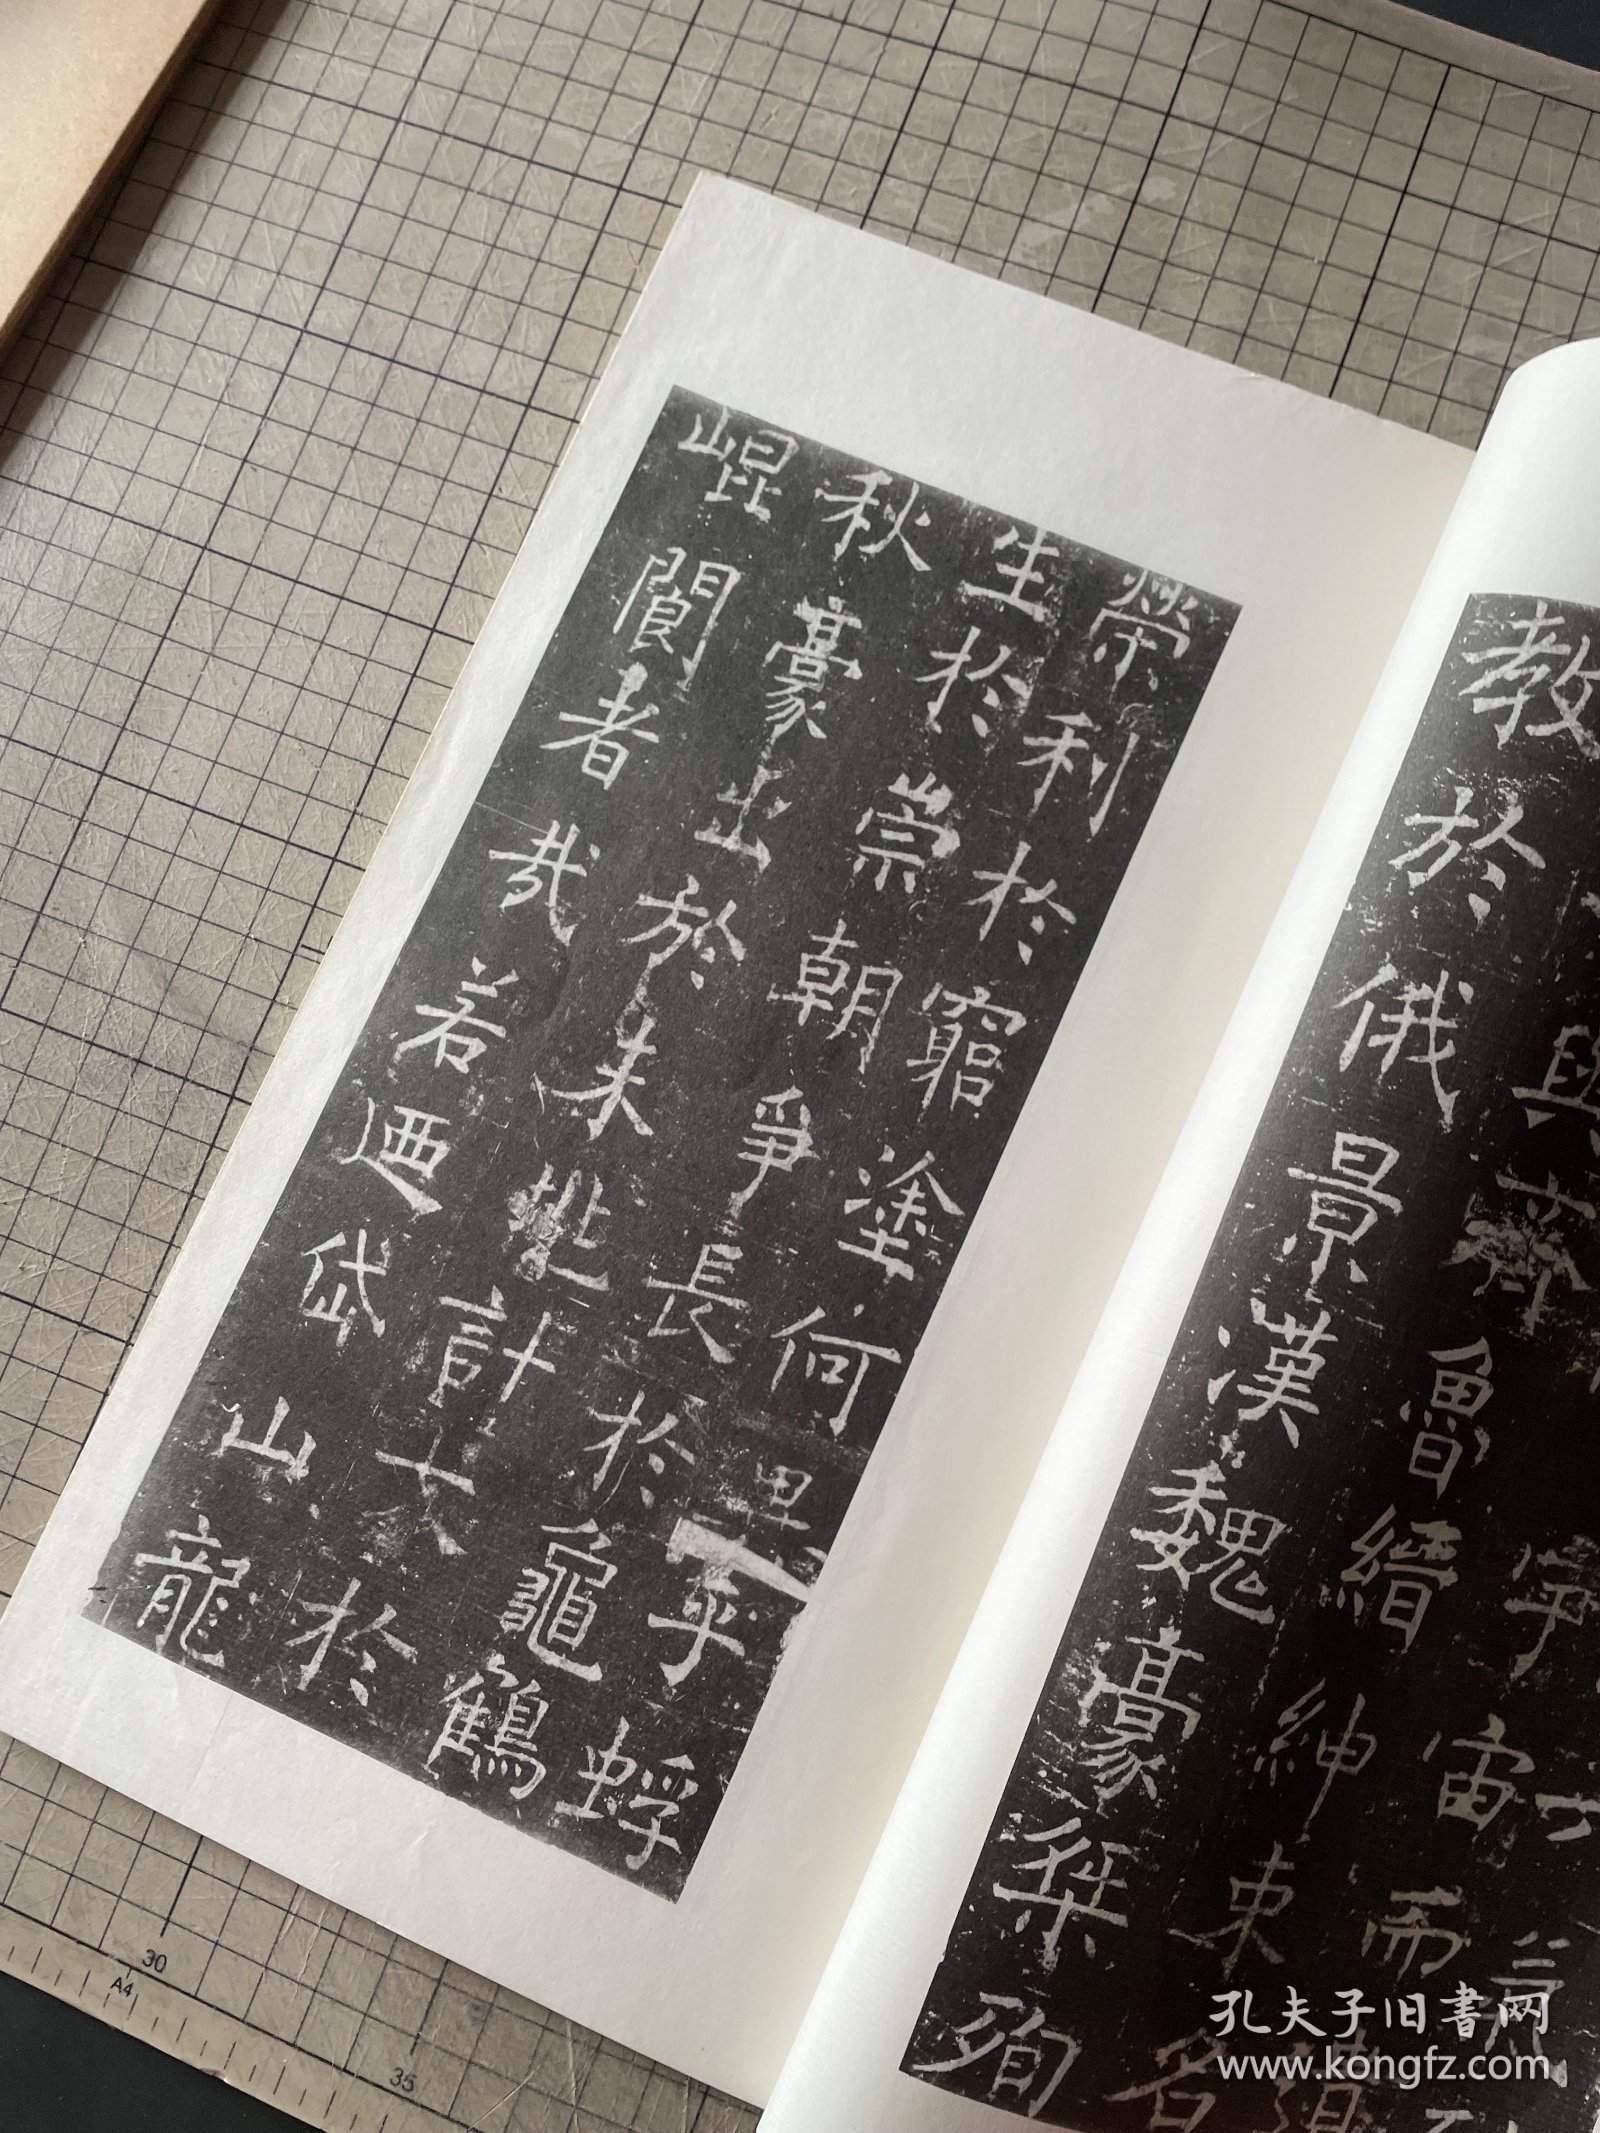 宇宙而
與齊魯縉紳束名
教於俄景漢魏豪桀殉
榮利於窮塗何異乎蜉
生於崇朝爭長於龜鶴
秋豪出於未兆計大於
崐閬者哉若迺岱山龍
30
A4
35
孔夫子旧書网
www.kongfz.com